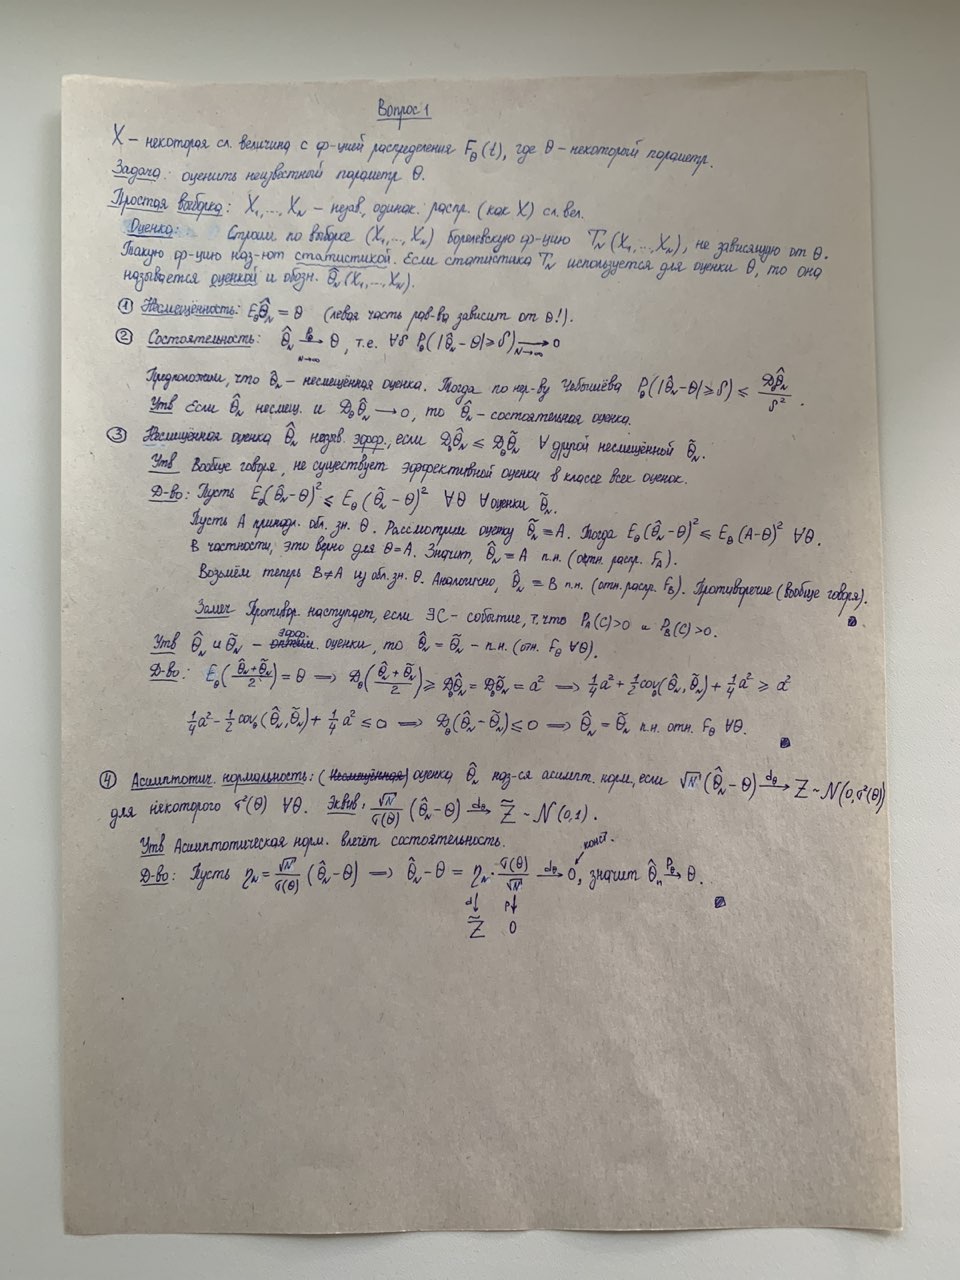 Вопрос 1
X – некоторая сл. величина с ф-цией распределения F_θ(t), где θ – некоторый параметр.
Задача: оценить неизвестный параметр θ.
Простая выборка: X₁,..., X_N – незав, одинак. распр. (как X) сл. вел.
Оценка: Строим по выборке (X₁,..., X_N) борелевскую ф-цию T_N(X₁,..., X_N), не зависящую от θ.
Такую ф-цию наз-ют статистикой. Если статистика T_N используется для оценки θ, то она
называется оценкой и обозн. θ̂_N(X₁,..., X_N).
① Несмещённость: E_θ θ̂_N = θ (левая часть рав-ва зависит от θ!).
② Состоятельность: θ̂_N →^{P_θ}_{N→∞} θ, т.е. ∀δ P_θ(|θ̂_N − θ| ⩾ δ) →_{N→∞} 0
Предположим, что θ̂_N – несмещённая оценка. Тогда по нер-ву Чебышёва P_θ(|θ̂_N − θ| ⩾ δ) ⩽ D_θ θ̂_N / δ².
Утв Если θ̂_N несмещ. и D_θ θ̂_N → 0, то θ̂_N – состоятельная оценка.
③ Несмещённая оценка θ̂_N назыв. эфф., если D_θ θ̂_N ⩽ D_θ θ̃_N ∀ другой несмещённой θ̃_N.
Утв Вообще говоря, не существует эффективной оценки в классе всех оценок.
Д-во: Пусть E_θ(θ̂_N − θ)² ⩽ E_θ(θ̃_N − θ)² ∀θ ∀ оценки θ̃_N.
Пусть A принадл. обл. зн. θ. Рассмотрим оценку θ̃_N = A. Тогда E_θ(θ̂_N − θ)² ⩽ E_θ(A − θ)² ∀θ.
В частности, это верно для θ = A. Значит, θ̂_N = A п.н. (отн. распр. F_A).
Возьмём теперь B ≠ A из обл. зн. θ. Аналогично, θ̂_N = B п.н. (отн. распр. F_B). Противоречие (вообще говоря).
Замеч Противор. наступает, если ∃C – событие, т. что P_A(C) > 0 и P_B(C) > 0.
Утв θ̂_N и θ̃_N – эфф. оценки, то θ̂_N = θ̃_N – п.н. (отн. F_θ ∀θ).
Д-во: E_θ((θ̂_N + θ̃_N)/2) = θ ⟹ D_θ((θ̂_N + θ̃_N)/2) ⩾ D_θ θ̂_N = D_θ θ̃_N = a² ⟹ ¼a² + ½cov_θ(θ̂_N, θ̃_N) + ¼a² ⩾ a²
¼a² − ½cov_θ(θ̂_N, θ̃_N) + ¼a² ⩽ 0 ⟹ D_θ(θ̂_N − θ̃_N) ⩽ 0 ⟹ θ̂_N = θ̃_N п.н. отн. F_θ ∀θ.
④ Асимптотич. нормальность: (Несмещённая) оценка θ̂_N наз-ся асимпт. норм., если √N (θ̂_N − θ) →^{d_θ} Z ~ N(0, σ²(θ))
для некоторого σ²(θ) ∀θ. Эквив: √N/σ(θ) (θ̂_N − θ) →^{d_θ} Z̃ ~ N(0,1).
Утв Асимптотическая норм. влечёт состоятельность.
конст.
Д-во: Пусть η_N = √N/σ(θ) (θ̂_N − θ) ⟹ θ̂_N − θ = η_N · σ(θ)/√N →^{d_θ} 0, значит θ̂_n →^{P_θ} θ.
d↓ P↓
Z̃ 0